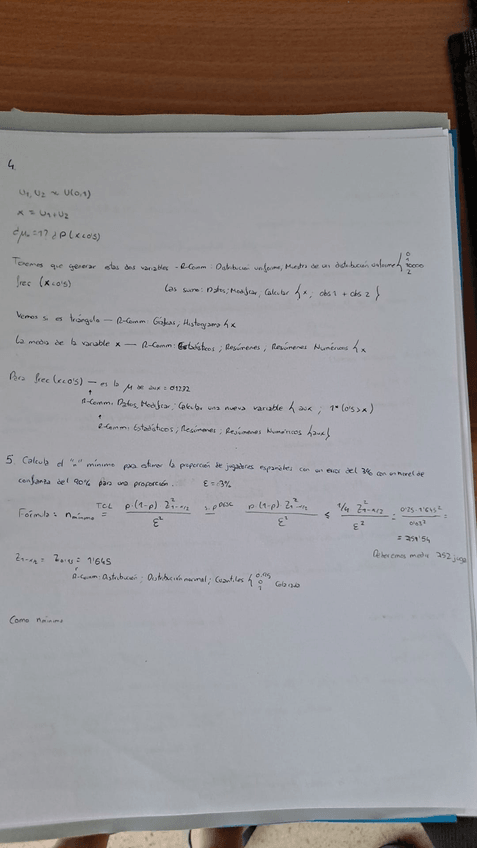 4.
U1, U2 = U(0,1)
x = U1+U2
¿μ = 1? ¿P(x<0'5)
Tenemos que generar estas dos variables - R-Comm: Distribución uniforme, Muestra de una distribución uniforme { 0 1 10000 2
frec (x<0'5) Las sumo: Datos, Modificar, Calcular { x ; obs1 + obs2 }
Vemos si es triángulo — R-Comm: Gráficas, Histograma { x
La media de la variable x — R-Comm: Estadísticos, Resúmenes, Resúmenes Numéricos { x
Para frec (x<0'5) — es la μ de aux =
R-Comm: Datos, Modificar, Calcular una nueva variable { aux ; 1*(0'5>x)
R-Comm: Estadísticos, Resúmenes, Resúmenes Numéricos {aux}
5. Calcula el "n" mínimo para estimar la proporción de jugadores españoles con un error del 3% con un nivel de
confianza del 90% para una proporción. ε = 3%
Fórmula: n mínimo TCL = p·(1-p) Z²1-α/2 / ε² = p·(1-p)·Z²1-α/2 / ε² ≤ 1/4 Z²1-α/2 / ε² = 0'25·1'645² / 0'03² =
Z1-α/2 = Z0'95 = 1'645
R-Comm: Distribución, Distribución normal, Cuantiles { 0'95 0 1 Cola izda
Como n mínimo